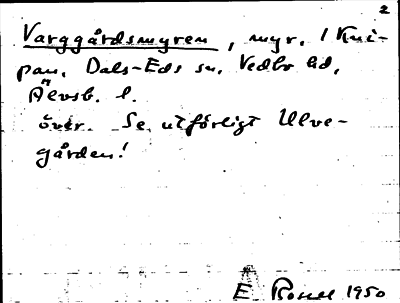 2
Varggårdsmyren, myr. / Kni-
pan, Dals-Eds sn, Vedbo hd,
Älvsb. l.
över. Se utförligt Ulve-
gården!
E Rosell 1950